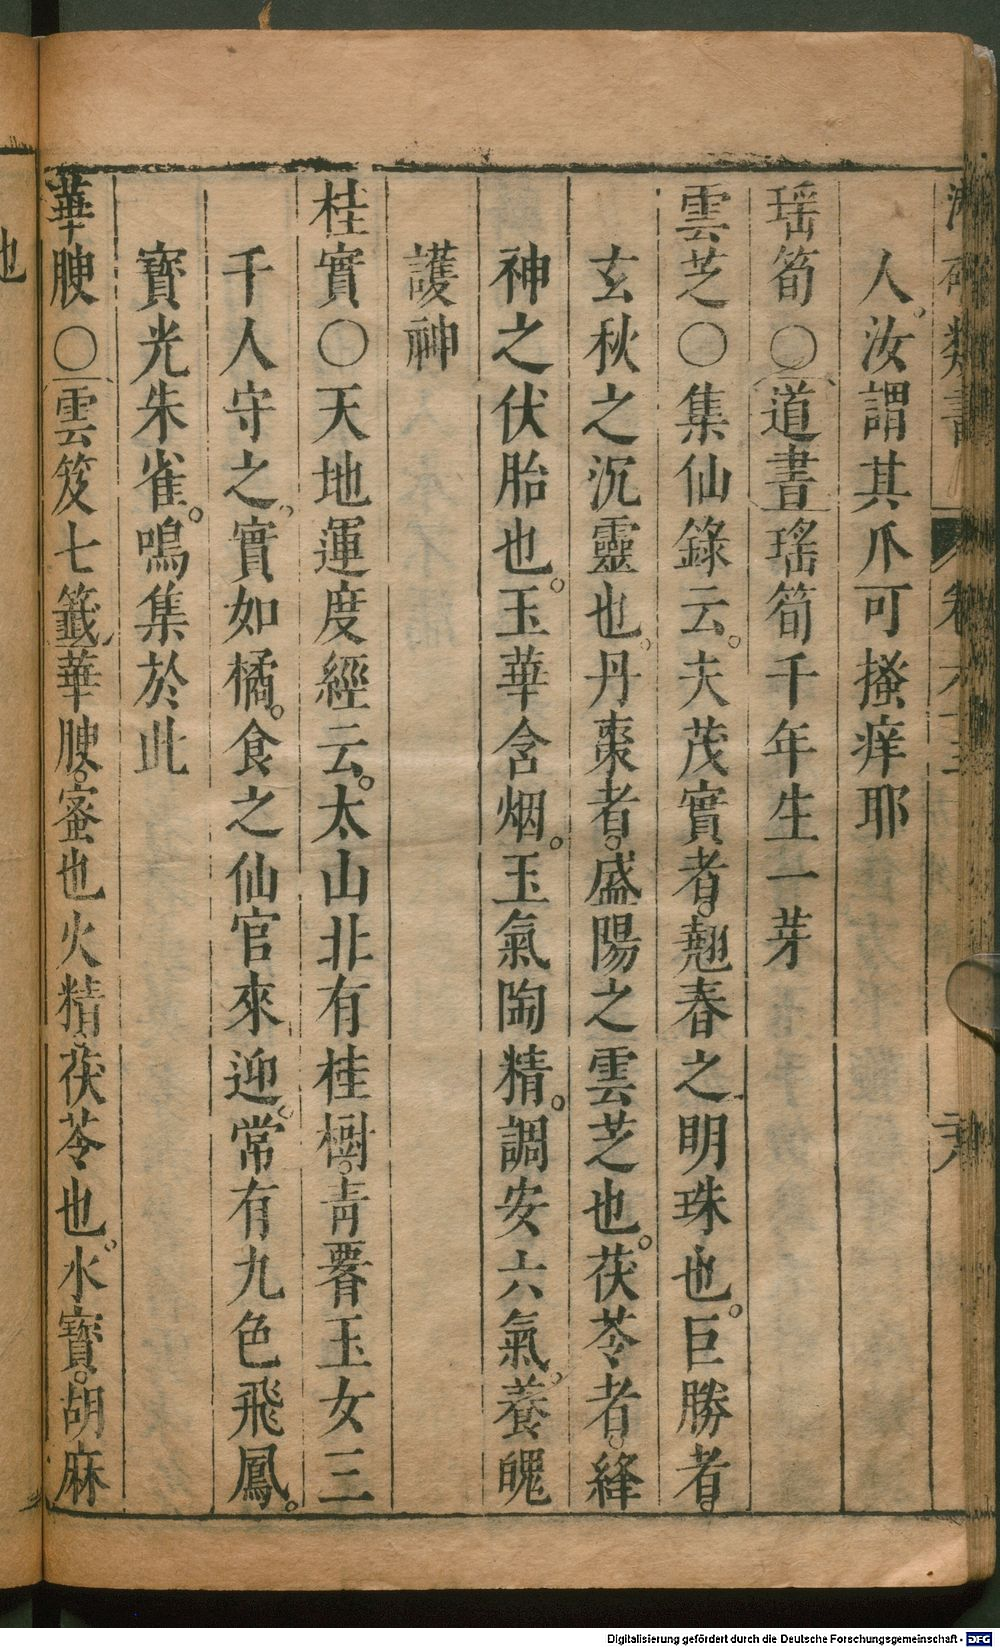 類書 卷
人。汝謂其爪可搔痒耶
瑶筍〇道書瑤筍千年生一芽
雲芝〇集仙錄云。夫茂實者。翹春之明珠也。巨勝者。
玄秋之沉靈也。丹棗者。盛陽之雲芝也。茯苓者。絳
神之伏胎也。玉華含烟。玉氣陶精。調安六氣。養魄
護神
桂實〇天地運度經云。太山北有桂樹。青㫺玉女三
千人守之。實如橘。食之仙官來迎。常有九色飛鳳。
寳光朱雀。鳴集於此
華腴〇雲笈七籤華腴。蜜也火精。茯苓也。水寳。胡麻
也
Digitalisierung gefördert durch die Deutsche Forschungsgemeinschaft - DFG